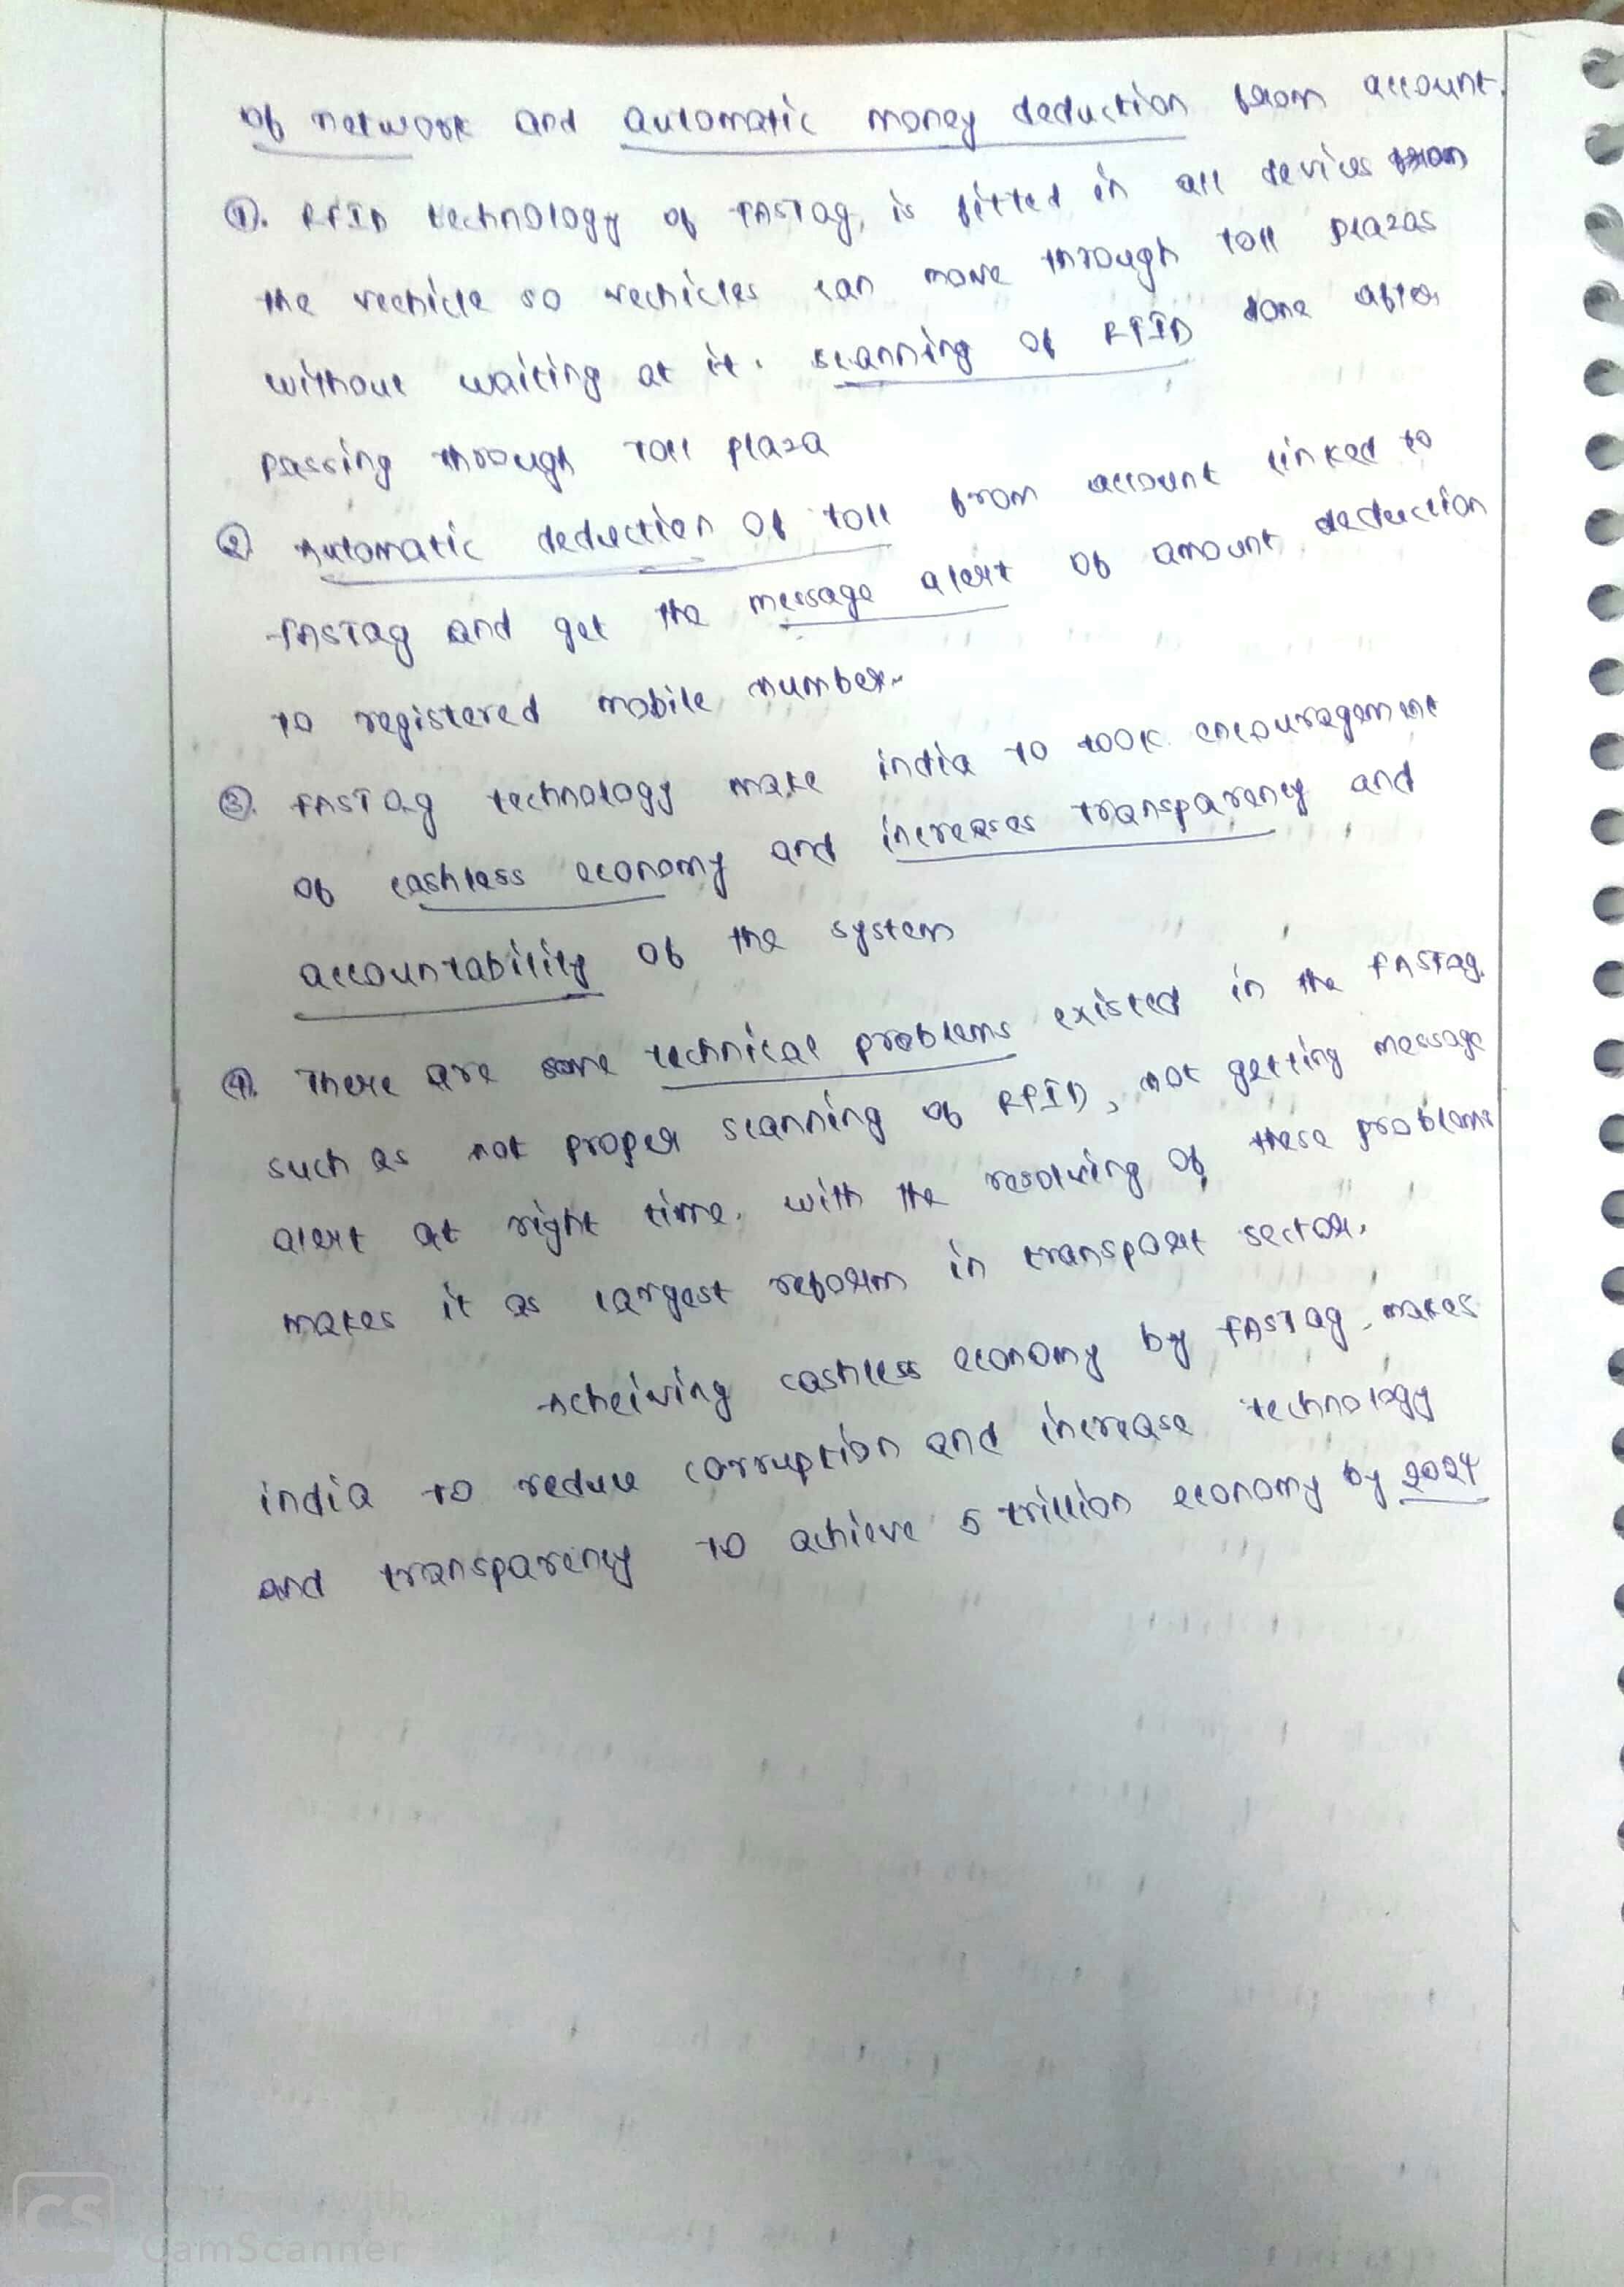 of network and automatic money deduction from account.
①. RFID technology of FASTag, is fitted in all devices
the vechicle so vechicles can move through toll plazas
without waiting at it. scanning of RFID done after
passing through Toll plaza
② Automatic deduction of toll from account linked to
FASTag and get the message alert of amount deduction
to registered mobile number.
③. FASTag technology make india to took encouragement
of cashless economy and increases transparency and
accountability of the system
④. There are some technical problems existed in the FASTag.
such as not proper scanning of RFID, not getting message
alert at right time. with the resolving of these problems
makes it as largest reform in transport sector.
Acheiving cashless economy by FASTag, makes
india to reduce corruption and increase technology
and transparency to achieve 5 trillion economy by 2024
CS
CamScanner